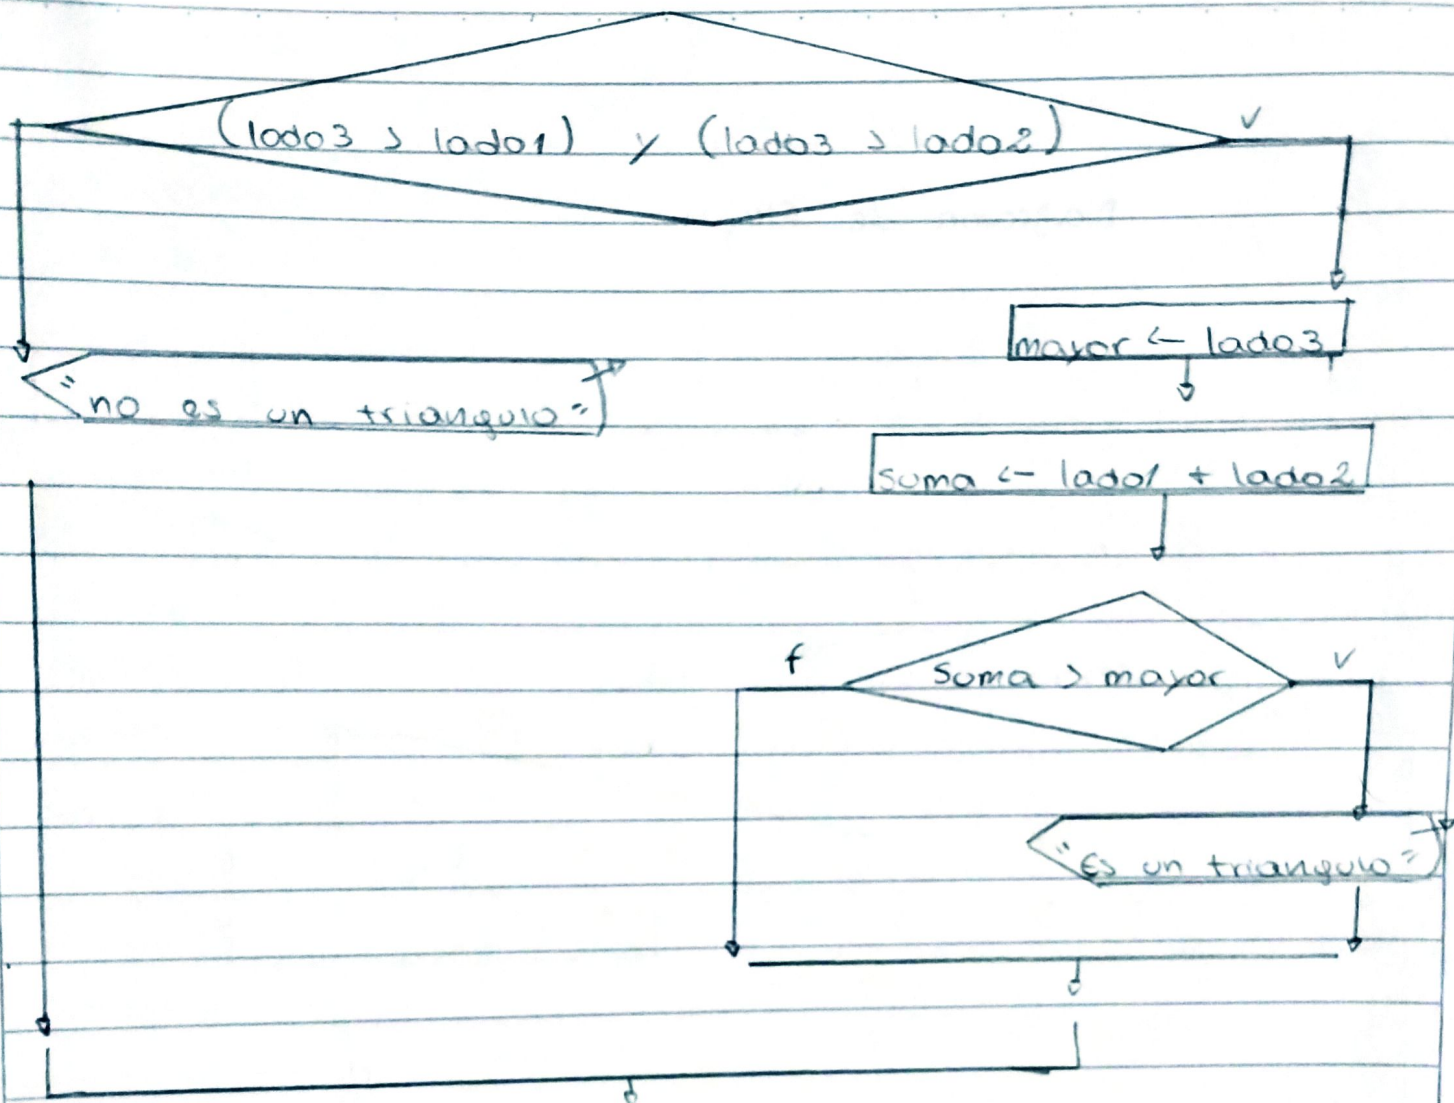 (lado3 > lado1) y (lado3 > lado2)
v
mayor ← lado3
"no es un triangulo"
suma ← lado1 + lado2
f
suma > mayor
v
"Es un triangulo"